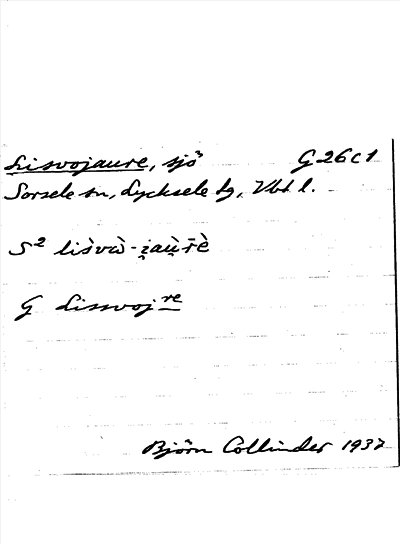 Lisvojaure, sjö G 26 c 1
Sorsele sn, Lycksele lg, Vbt l.
S² lìsvὼ-i̯au̯rè
G Lissvojre
Björn Collinder 1937